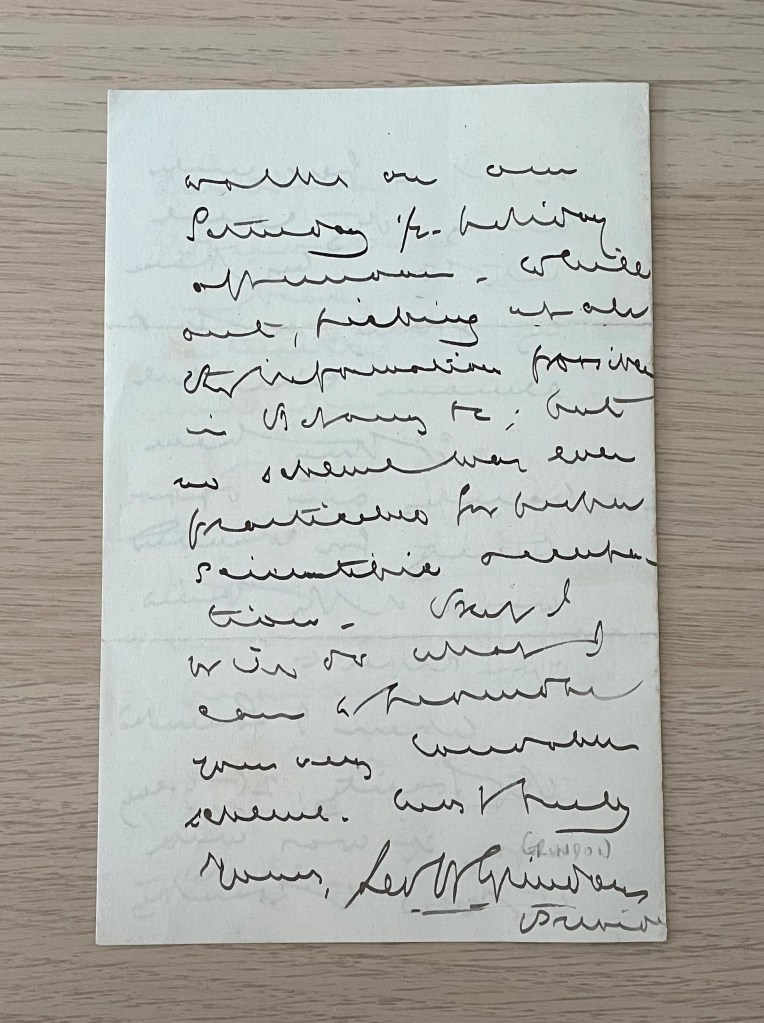 walks on our
Saturday ½-holiday
afternoons. While
out, picking up all
the information possible
in Botany &c; but
no scheme was ever
practicable for further
scientific occupa-
tion. But I
will do what I
can to promote
your very laudable
scheme. Most truly
(GRINDON)
Yours, Leo H Grindon